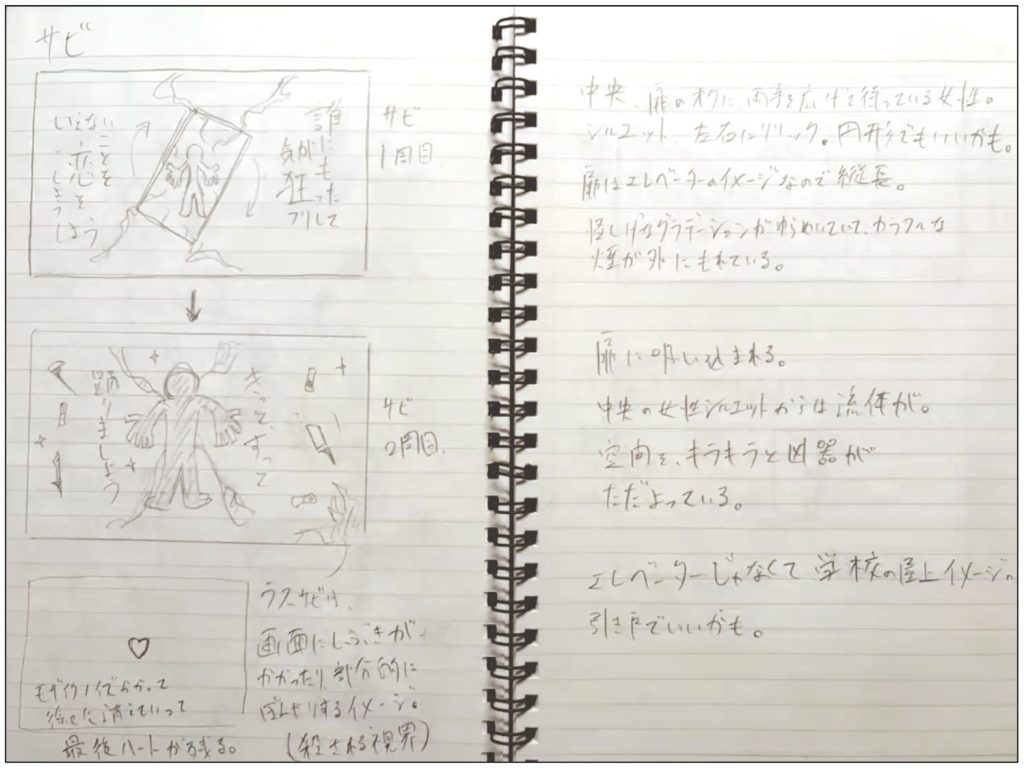 サビ
いえない
ことを
恋を
しよう
しよう
誰にも
気が
狂った
フリして
サビ
1周目
踊りましょう
きっと、ずって
サビ
2周目.
モザイクノイズかかって
徐々に消えていって
最後ハートが残る。
ラスサビは、
画面にしぶきが
かかったり、部分的に
するイメージ。
(殺される視界)
中央、扉のオクに、両手を広げて待っている女性。
シルエット、左右にリリック。円形でもいいかも。
扉はエレベーターのイメージなので縦長。
怪しげなグラデーションがゆらめいていて、カラフルな
煙が外にもれている。
扉に吸い込まれる。
中央の女性シルエットからは流体が。
空間を、キラキラと凶器が
ただよっている。
エレベーターじゃなくて学校の屋上イメージ。
引き戸でいいかも。